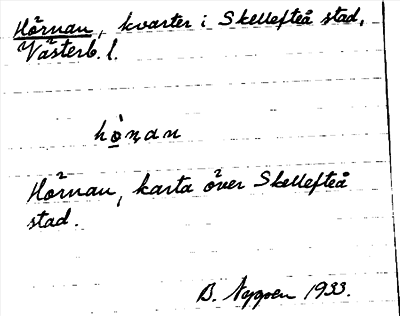 Hörnan, kvarter i Skellefteå stad,
Västerb. l.
hò̱ṇan
Hörnan, karta över Skellefteå
stad.
B. 1933.